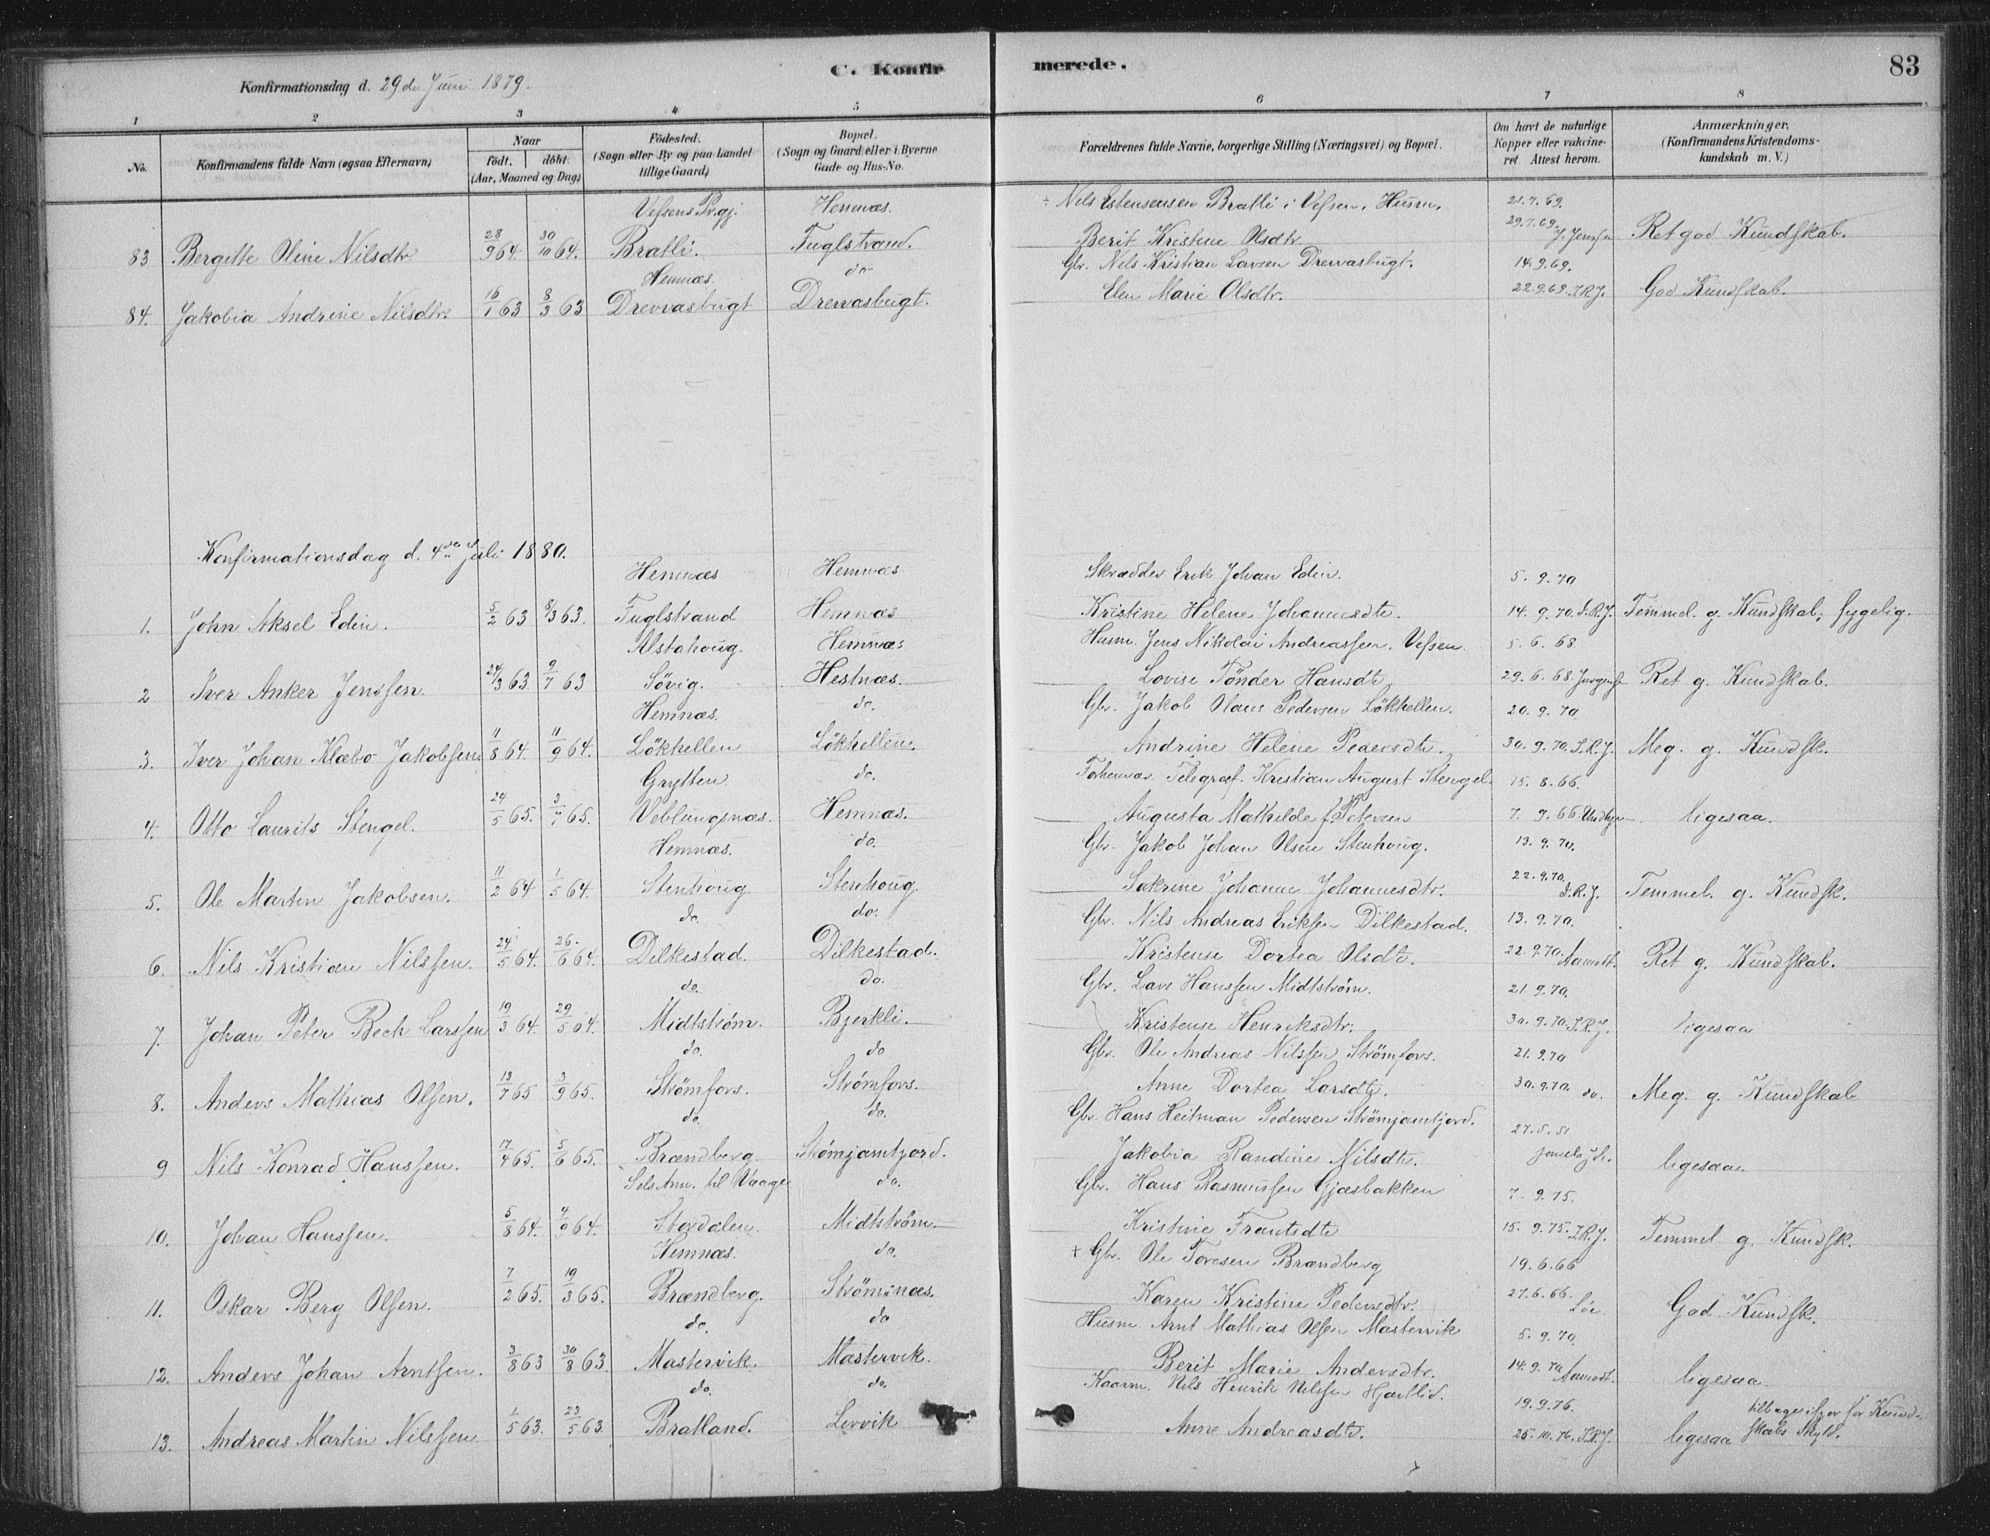 83
C. Konfirmerede.
Konfirmationsdag d. 29de Juni 1879.
1 2 3 4 5 6 7 8
No.
Konfirmandens fulde Navn (ogsaa Efternavn)
Naar
födt. döbt.
(Aar, Maaned og Dag)
Födested.
(Sogn eller By og paa Landet
tillige Gaard)
Bopæl.
(Sogn og Gaard eller i Byerne
Gade- og Hus-No.
Forældrenes fulde Navne, borgerlige Stilling (Næringsvei) og Bopæl.
Om havt de naturlige
Kopper eller vakcine-
ret. Attest herom.
Anmærkninger.
(Konfirmandens Kristendoms-
kundskab m. V.)
Vefsens Pr.gj. Hemnæs. ÷ Nils Estensensen Bratli i Vefsen, Husm. 21.7.69.
83 Bergitte Oline Nilsdtr 28/9 64. 30/10 64. Bratli. Fuglstrand. Berit Kristine Olsdtr. 29.7.69. J. Jenssen Ret god Kundskab.
Hemnæs. do Gbr. Nils Kristian Larsen Drevvasbugt. 14.9.69.
84. Jakobia Andrine Nilsdtr. 16/1 63 8/3 63 Drevvasbugt Drevvasbugt. Elen Marie Olsdtr. 22.9.69. J.R.J. God Kundskab.
Konfirmationsdag d. 4de Juli 1880.
Hemnæs Hemnæs Skrædder Erik Johan Edin. 5.9.70
1. John Aksel Edin. 5/2 63 8/3 63. Fuglstrand Hemnæs Kristine Helene Johannesdtr. 14.9.70. J.R.J. Temmel. g. Kundskab, sygelig.
Alstahoug. Hemnæs Husm. Jens Nikolai Andreassen, Vefsen. 5.6.68
2 Iver Anker Jenssen 24/3 63. 9/7 63 Søvig. Hestnæs. Lovise Tønder Hansdtr 29.6.68. Ret g. Kundskab.
Hemnæs. do. Gbr. Jakob Olaus Pedersen Løkhellen. 20.9.70
3. Iver Johan Klæbo Jakobsen 11/8 64. 11/9 64. Løkhellen Løkhellen. Andrine Helene Pedersdtr. 30.9.70. J.R.J. Meg. g. Kundsk.
Grytten do. Telegraf. Kristian August Stengel. 15.8.66.
4. Otto Laurits Stengel. 24/5 65. 3/7 65. Veblungsnæs. Hemnæs. Augusta Mathilde f. Petersen 7.9.66 ligesaa.
Hemnæs. do. Gbr. Jakob Johan Olsen Stenhoug. 13.9.70.
5. Ole Martin Jakobsen. 11/2 64 1/5 64. Stenhoug Stenhoug. Sakrine Johanne Johannesdtr. 22.9.70. J.R.J. Temmel. g. Kundsk.
do. do. Gbr. Nils Andreas Eriksen Dilkestad. 13.9.70.
6. Nils Kristian Nilssen. 24/5 64. 26/6 64. Dilkestad. Dilkestad. Kristense Dortea Olsdtr. 22.9.70. Aamodt. Ret g. Kundskab.
do. do. Gbr. Lars Hanssen Midtstrøm. 21.9.70.
7. Johan Peter Bech Larssen 19/3 64. 29/5 64. Midtstrøm. Bjerkli. Kristense Henriksdtr. 30.9.70. J.R.J. ligesaa
do. do Gbr. Ole Andreas Nilssen Strømfors. 21.9.70
8. Anders Mathias Olsen. 13/7 65 3/9 65. Strømfors. Strømfors. Anne Dortea Larsdtr. 30.9.70. do. Meg. g. Kundskab
do. do. Gbr. Hans Heitman Pedersen Strømjamtjord.
9 Nils Konrad Hanssen. 17/4 65. 5/6 65. Brændberg. Strømjamtjord. Jakobia Randine Nilsdtr. ligesaa.
do. Gbr. Hans Rasmussen Gjæsbakken 7.9.75.
10. Johan Hanssen. 5/8 64. 4/9 64. Stordalen. Midtstrøm. Kristine Frantsdtr 15.9.75. J.R.J. Temmel. g. Kundsk.
Hemnæs. do. + Gbr. Ole Toresen Brændberg 19.6.66
11. Oskar Berg Olsen. 7/2 65. 19/3 65. Brændberg. Strømsnæs. Karen Kristine Pedersdtr. 27.6.66. God Kundsk.
do. do Husm Arnt Mathias Olsen Mastervik 5.9.70.
12. Anders Johan Arntsen. 3/8 63 30/8 63. Mastervik. Mastervik. Berit Marie Andersdtr. 14.9.70. Aamodt. ligesaa.
do. do. Kaarm. Nils Henrik Nilssen Hjartlid. 19.9.76. tilbage ifjor for Kund-
13. Andreas Martin Nilssen 1/5 63. 23/5 63. Bratland. Levvik Anne Andreasdtr. 25.10.76. J.R.J. ligesaa skabs Skyld.